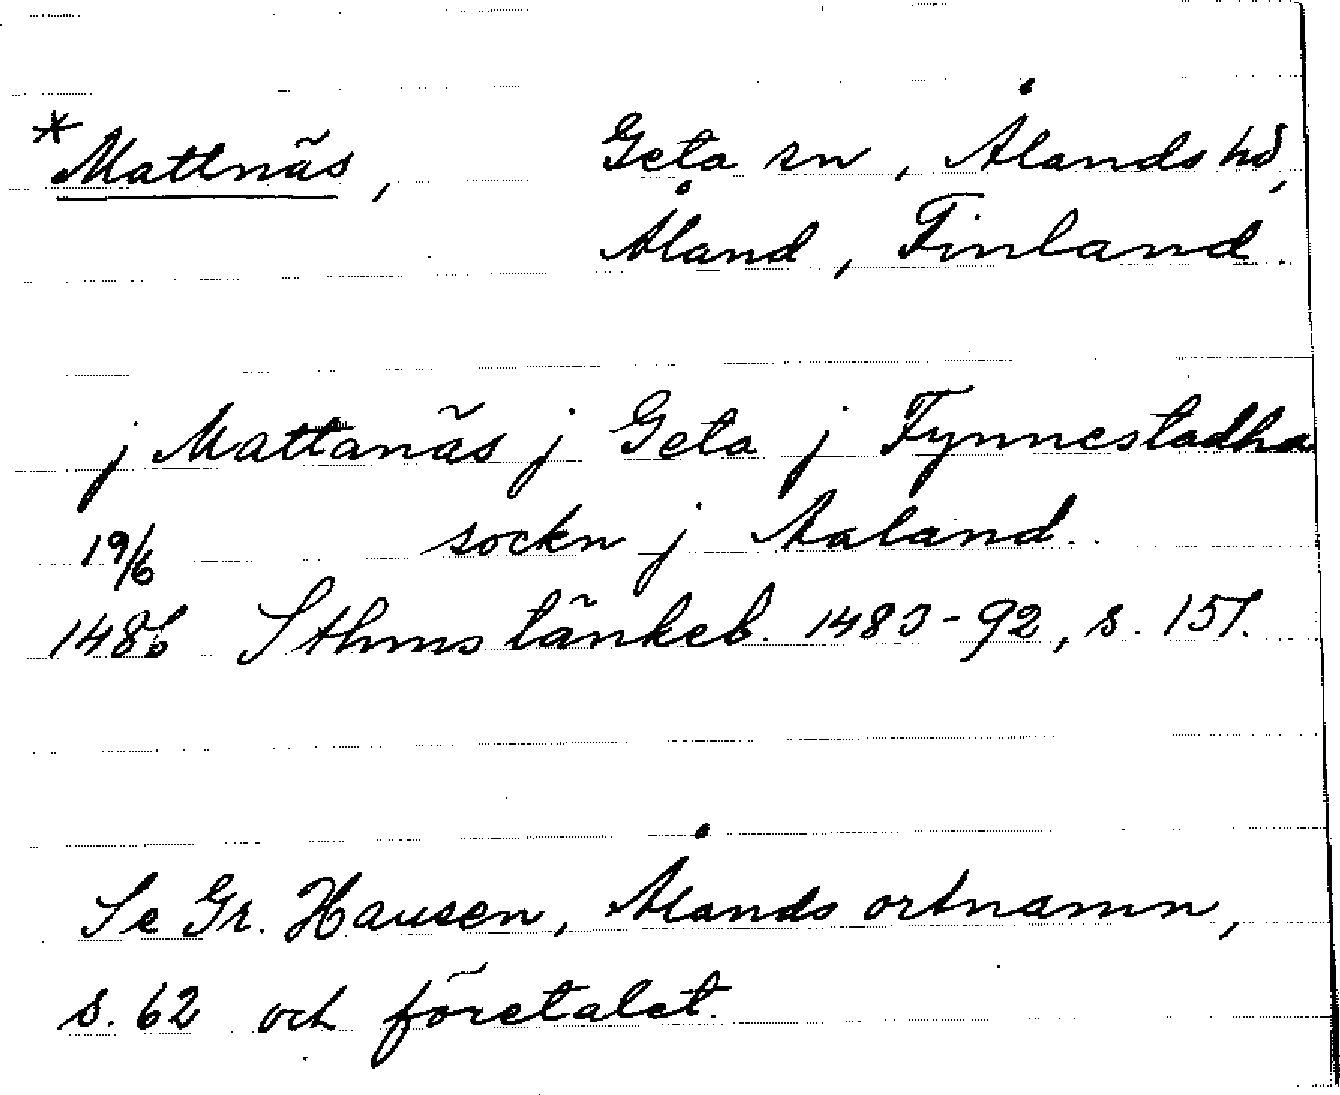 *Mattnäs, Geta sn, Ålands hd,
Åland, Finland.
j Mattanäs j Geta j Fynnestadha
19/6 sockn j Aaland.
1486 Sthms tänkeb. 1483-92, s. 151.
Se Gr. Hausen, Ålands ortnamn,
s. 62 och företalet.